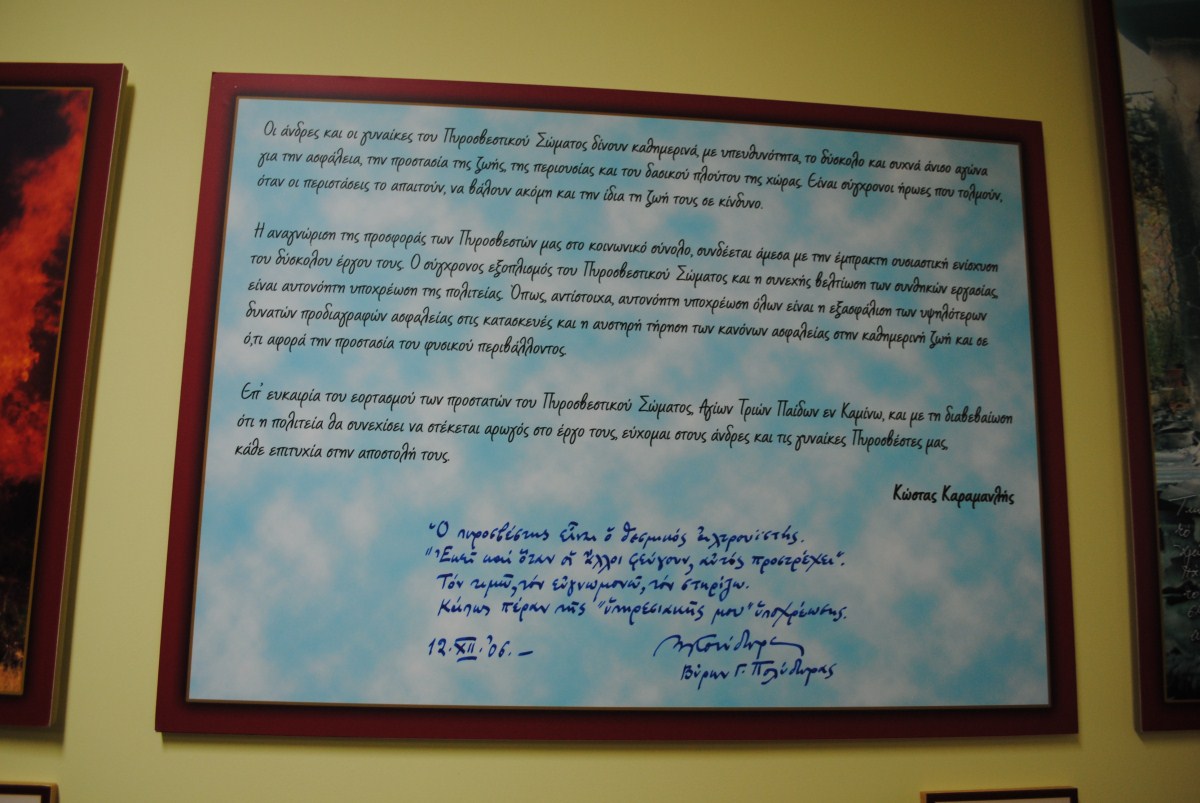 Οι άνδρες και οι γυναίκες του Πυροσβεστικού Σώματος δίνουν καθημερινά, με υπευθυνότητα, το δύσκολο και συχνά άνισο αγώνα
για την ασφάλεια, την προστασία της ζωής, της περιουσίας και του δασικού πλούτου της χώρας. Είναι σύγχρονοι ήρωες που τολμούν,
όταν οι περιστάσεις το απαιτούν, να βάλουν ακόμη και την ίδια τη ζωή τους σε κίνδυνο.
Η αναγνώριση της προσφοράς των Πυροσβεστών μας στο κοινωνικό σύνολο, συνδέεται άμεσα με την έμπρακτη ουσιαστική ενίσχυση
του δύσκολου έργου τους. Ο σύγχρονος εξοπλισμός του Πυροσβεστικού Σώματος και η συνεχής βελτίωση των συνθηκών εργασίας,
είναι αυτονόητη υποχρέωση της πολιτείας. Όπως, αντίστοιχα, αυτονόητη υποχρέωση όλων είναι η εξασφάλιση των υψηλότερων
δυνατών προδιαγραφών ασφαλείας στις κατασκευές και η αυστηρή τήρηση των κανόνων ασφαλείας στην καθημερινή ζωή και σε
ό,τι αφορά την προστασία του φυσικού περιβάλλοντος.
Επ' ευκαιρία του εορτασμού των προστατών του Πυροσβεστικού Σώματος, Αγίων Τριών Παίδων εν Καμίνω, και με τη διαβεβαίωση
ότι η πολιτεία θα συνεχίσει να στέκεται αρωγός στο έργο τους, εύχομαι στους άνδρες και τις γυναίκες Πυροσβέστες μας,
κάθε επιτυχία στην αποστολή τους.
Κώστας Καραμανλής
"Ὁ πυροσβέστης εἶναι ὁ θεσμικός ἀλτρουϊστής.
"Ἐκεῖ πού ὅταν οἱ ἄλλοι φεύγουν, αὐτός προστρέχει".
Τόν τιμῶ, τόν εὐγνωμονῶ, τόν στηρίζω.
Κυρίως πέραν τῆς "ὑπηρεσιακῆς μου" ὑποχρέωσης.
12.XII.'06.-
Βύρων Γ. Πολύδωρας